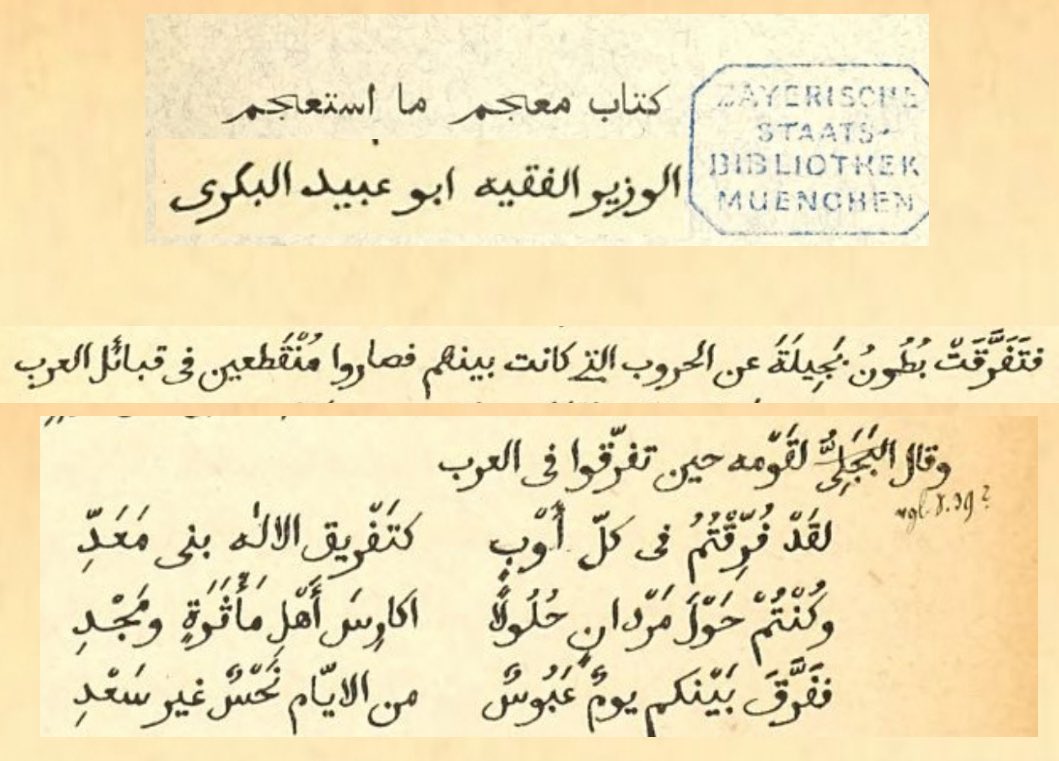 كتاب معجم ما استعجم
الوزير الفقيه ابو عبيد البكرى
BAYERISCHE
STAATS-
BIBLIOTHEK
MUENCHEN
فتَفَرَّقَتْ بُطُونُ بَجِيلَةَ عن الحروب التى كانت بينهم فصاروا مُنْقَطعين فى قبائل العرب
وقال البَجَلِىُّ لقَوْمه حين تفرّقوا فى العرب
لقَدْ فُرِّقْتُمُ فى كلّ أَوْبٍ كتَفْريق الالٰه بنى مَعَدِّ
وكُنْتُمْ حَوْلَ مَرْدانٍ حُلُولًا اكارِسَ أَهْلِ مَأْثَرَةٍ ومَجْدِ
ففَرَّقَ بَيْنكم يومٌ عَبُوسٌ من الايّام نَحْسٌ غير سَعْدِ